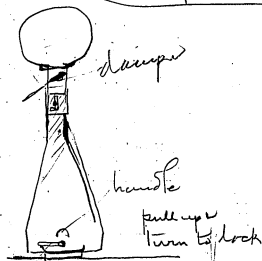 damper
handle
pull up
turn to lock